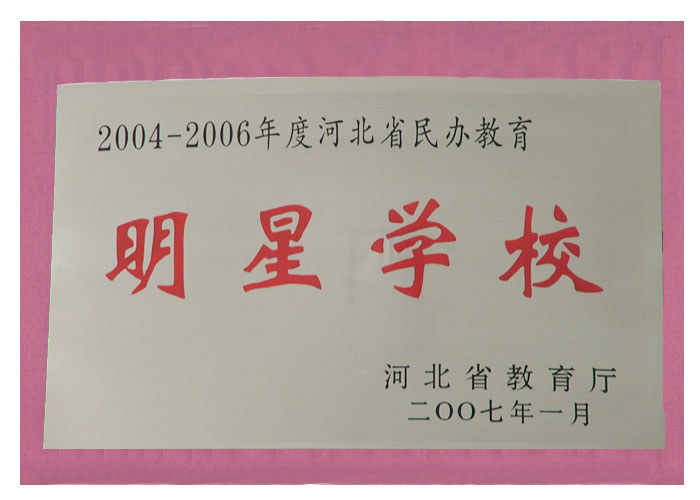 2004-2006年度河北省民办教育
明星学校
河北省教育厅
二OO七年一月